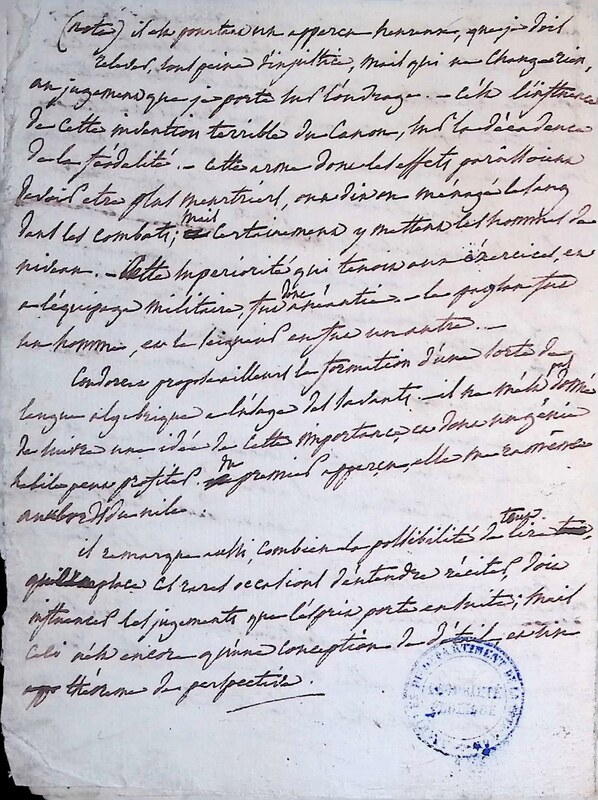 (note) il est pourtant un apperçu heureux, que je dois
relever, sous peine d'injustice, mais qui ne change rien,
au jugement que je porte sur l'ouvrage. – C'est l'influence
de cette invention terrible du Canon, sur la décadence
de la féodalité. – Cette arme dont les effets paroissoient
devoir etre plus meurtriers, a en ménagé le sang
dans les combats; mais certainement y mettant les hommes de
niveau. – Cette superiorité qui tenoit aux exercices, et
a l'équipage militaire, fut donc anéantie. – le paysan fut
un homme, et le seigneur en fut un autre. –
Condorcet propose ailleurs la formation d'une sorte de
langue algebrique a l'usage des savants. – il ne m'est donné
de suivre une idée de cette importance, et dont un génie
habile peut profiter du premier apperçu, elle me ramène
aux bords du nile.
il remarque aussi, combien la possibilité de lire tout,
place et rares occasions d'entendre réciter, doit
influencer les jugements que l'esprit porte ensuite; mais
ceci n'est encore qu'une conception de détail, et un
théorème de perspective.